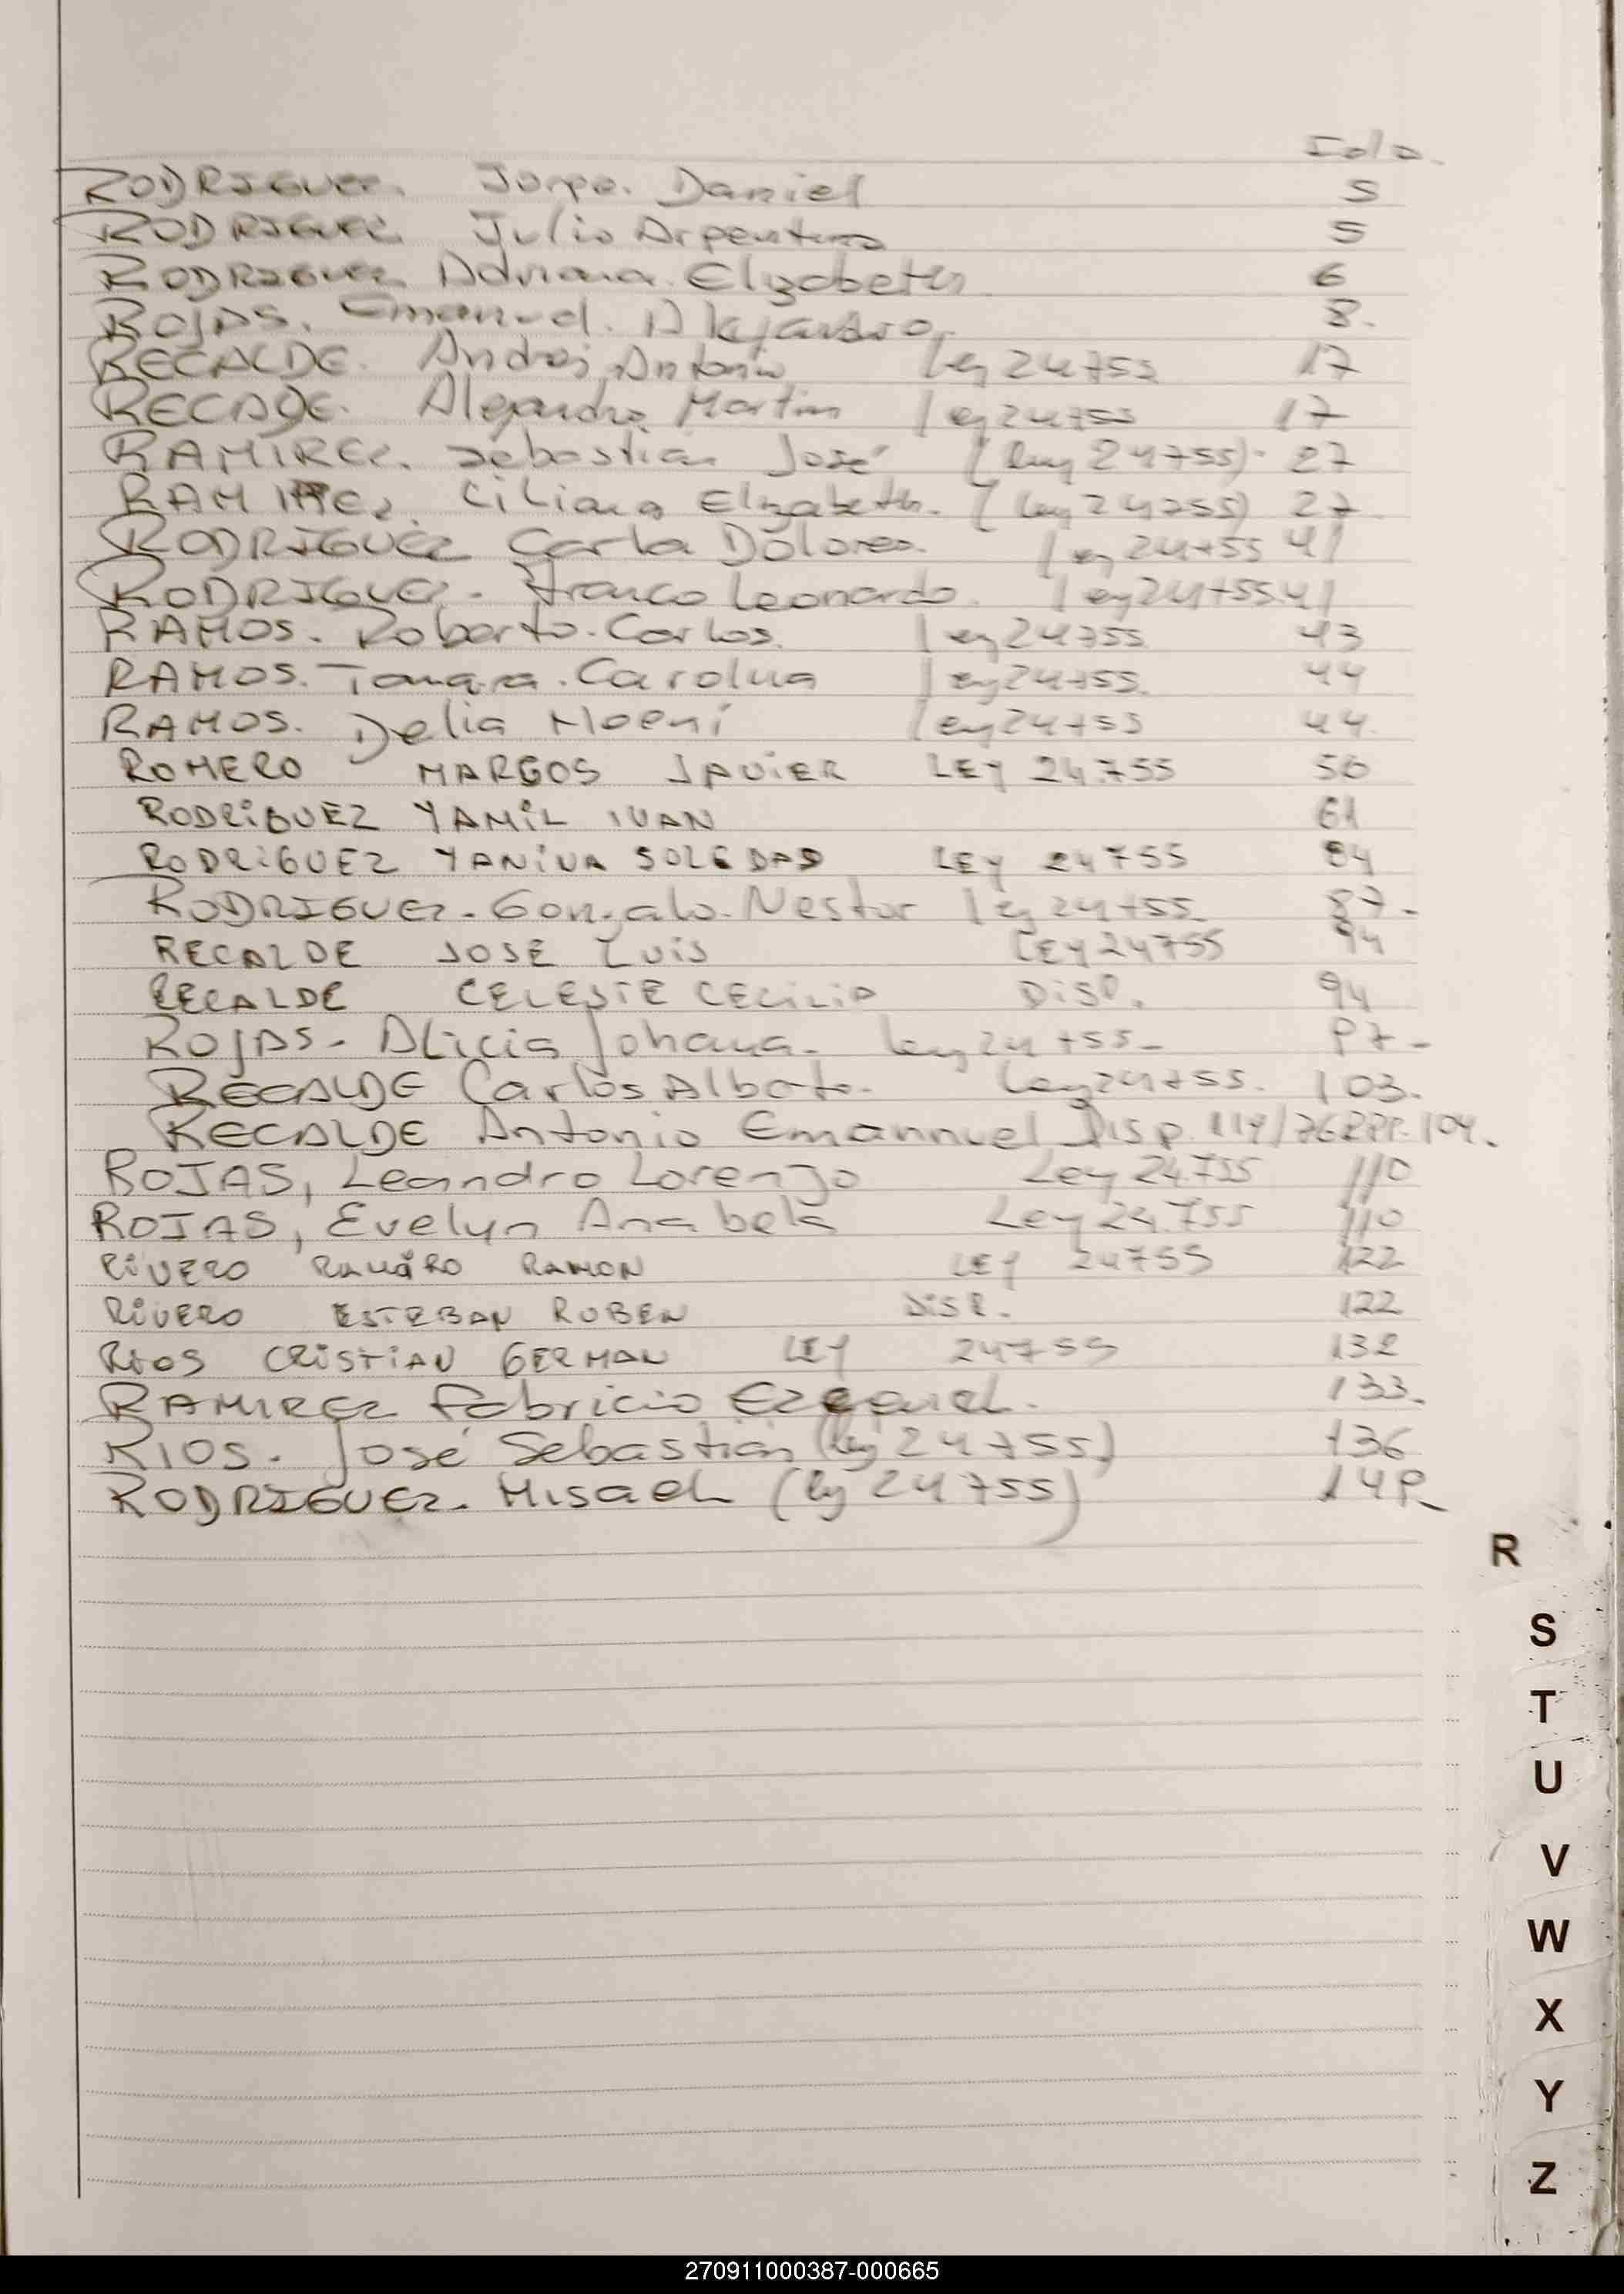 Folio.
RODRIGUEZ. Jorge. Daniel 5
RODRIGUEZ Julio Argentino 5
RODRIGUEZ Adriana Elizabeth 6
ROJAS. Emanuel. Alejandro. 8.
RECALDE. Andres Antonio Ley 24755 17
RECADE. Alejandro Martin Ley 24755 17
RAMIREZ. Sebastian José (Ley 24755) 27
RAMIREZ. Liliana Elizabeth. (Ley 24755) 27
RODRIGUEZ Carla Dolores. Ley 24755 41
RODRIGUEZ. Franco Leonardo. Ley 24755 41
RAMOS. Roberto. Carlos. Ley 24755 43
RAMOS. Tamara. Carolina Ley 24755. 44
RAMOS. Delia Noemí Ley 24755 44.
ROMERO MARCOS JAVIER LEY 24.755 56
RODRIGUEZ YAMIL IVAN 61
RODRIGUEZ YANINA SOLEDAD LEY 24755 84
RODRIGUEZ. Gonzalo. Nestor Ley 24755. 87-
RECALDE JOSE LUIS LEY 24755 94
RECALDE CELESTE CECILIA DISP. 94
ROJAS- Alicia Johana. Ley 24755- 97-
RECALDE Carlos Alberto. Ley 24755. 103.
RECALDE Antonio Emannuel Disp. 114/76 104.
ROJAS, Leandro Lorenzo Ley 24.755 110
ROJAS, Evelyn Anabela Ley 24.755 110
RIVERO RAMIRO RAMON LEY 24755 122
RIVERO ESTEBAN RUBEN DISP. 122
RIOS CRISTIAN GERMAN LEY 24755 132
RAMIREZ Fabricio Ezequiel. 133.
RIOS. José Sebastián (Ley 24755) 136
RODRIGUEZ. Misael (Ley 24755)
R
S
T
U
V
W
X
Y
Z
270911000387-000665